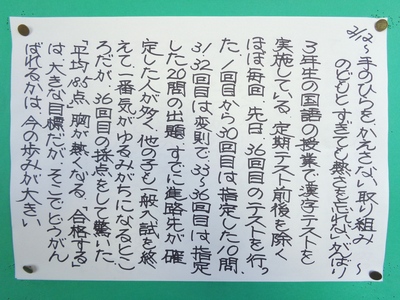 2/12～手のひらをかえさない取り組み
のどもとすぎても熱さを忘れないがんばり～
3年生の国語の授業で漢字テストを
実施している。定期テスト前後を除く
ほぼ毎回。先日、36回目のテストを行っ
た。1回目から30回目は指定した10問、
31、32回目は変則で、33～36回目は、指定
した20問の出題。すでに進路先が確
定した人が多く、他の子も一般入試を終
えて、一番気がゆるみがちになるところ
ろだが、36回目の採点をして驚いた。
「平均18.5点」胸が熱くなる。「合格する」
は、大きな目標だが、そこでどうがん
ばれるかは、今の歩みが大きい。